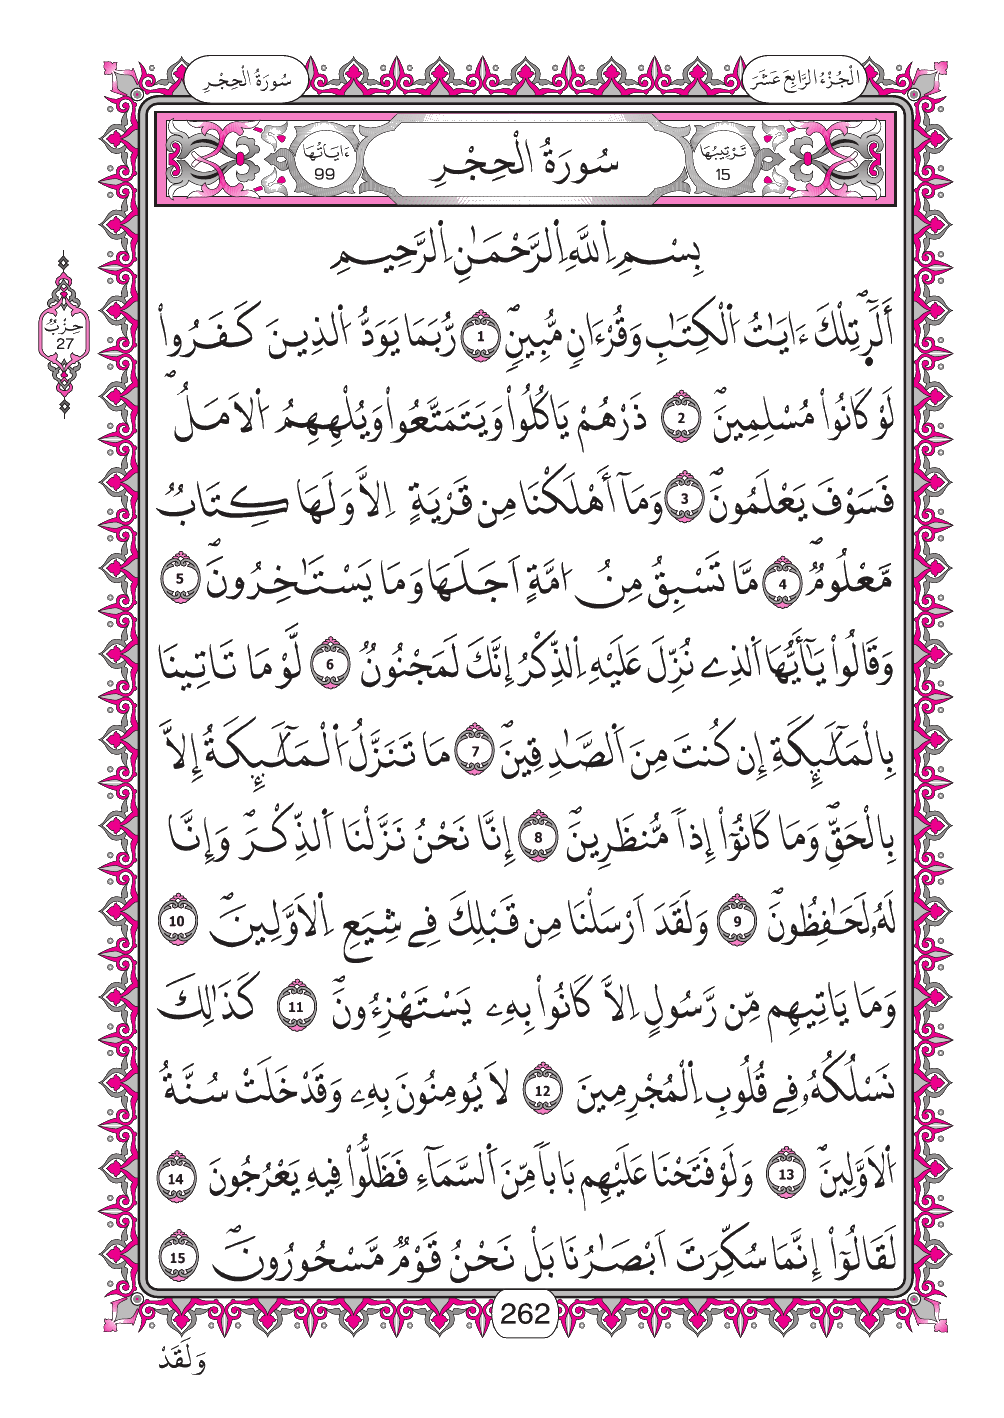 الْجُزْءُ الرَّابِعَ عَشَرَ
سُورَةُ الْحِجْرِ
تَرْتِيبُهَا 15
سُورَةُ الْحِجْرِ
ءَايَاتُهَا 99
بِسْمِ اِ۬للَّهِ اِ۬لرَّحْمَٰنِ اِ۬لرَّحِيمِ
حِزْبٌ 27
أَلَٓرۖ تِلْكَ ءَايَٰتُ اُ۬لْكِتَٰبِ وَقُرْءَانٖ مُّبِينٖۖ 1 رُّبَمَا يَوَدُّ اُ۬لذِينَ كَفَرُواْ
لَوْ كَانُواْ مُسْلِمِينَۖ 2 ذَرْهُمْ يَاكُلُواْ وَيَتَمَتَّعُواْ وَيُلْهِهِمُ اُ۬لَامَلُۖ
فَسَوْفَ يَعْلَمُونَۖ 3 وَمَآ أَهْلَكْنَا مِن قَرْيَةٍ اِلَّا وَلَهَا كِتَابٞ
مَّعْلُومٞۖ 4 مَّا تَسْبِقُ مِنُ ا۟مَّةٍ اَجَلَهَا وَمَا يَسْتَٰخِرُونَۖ 5
وَقَالُواْ يَٰٓأَيُّهَا اَ۬لذِے نُزِّلَ عَلَيْهِ اِ۬لذِّكْرُ إِنَّكَ لَمَجْنُونٞ 6 لَّوْ مَا تَاتِينَا
بِالْمَلَٰٓئِكَةِ إِن كُنتَ مِنَ اَ۬لصَّٰدِقِينَۖ 7 مَا تَنَزَّلُ اُ۬لْمَلَٰٓئِكَةُ إِلَّا
بِالْحَقِّۖ وَمَا كَانُوٓاْ إِذاٗ مُّنظَرِينَۖ 8 إِنَّا نَحْنُ نَزَّلْنَا اَ۬لذِّكْرَۖ وَإِنَّا
لَهُۥ لَحَٰفِظُونَۖ 9 وَلَقَدَ اَرْسَلْنَا مِن قَبْلِكَ فِے شِيَعِ اِ۬لَاوَّلِينَۖ 10
وَمَا يَاتِيهِم مِّن رَّسُولٍ اِلَّا كَانُواْ بِهِۦ يَسْتَهْزِءُونَۖ 11 كَذَٰلِكَ
نَسْلُكُهُۥ فِے قُلُوبِ اِ۬لْمُجْرِمِينَ 12 لَا يُومِنُونَ بِهِۦ وَقَدْ خَلَتْ سُنَّةُ
اُ۬لَاوَّلِينَۖ 13 وَلَوْ فَتَحْنَا عَلَيْهِم بَاباٗ مِّنَ اَ۬لسَّمَآءِ فَظَلُّواْ فِيهِ يَعْرُجُونَ 14
لَقَالُوٓاْ إِنَّمَا سُكِّرَتَ اَبْصَٰرُنَا بَلْ نَحْنُ قَوْمٞ مَّسْحُورُونَۖ 15
262
وَلَقَدْ